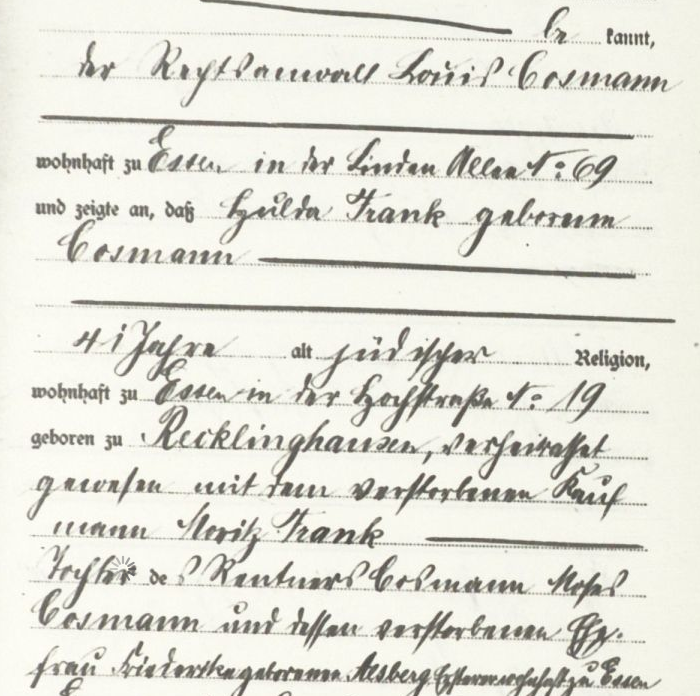 be kannt,
der Rechtsanwalt Louis Cosmann
wohnhaft zu Essen in der Linden Allee No 69
und zeigte an, daß Hulda Frank geborene
Cosmann
41 Jahre alt jüdischer Religion,
wohnhaft zu Essen in der Hochstraße No 19
geboren zu Recklinghausen, verheirathet
gewesen mit dem verstorbenen Kauf
mann Moritz Frank
Tochter des Rentners Cosmann Moses
Cosmann und dessen verstorbenen Ehe-
frau Friederike geborenen Alsberg Ersterer wohnhaft zu Essen